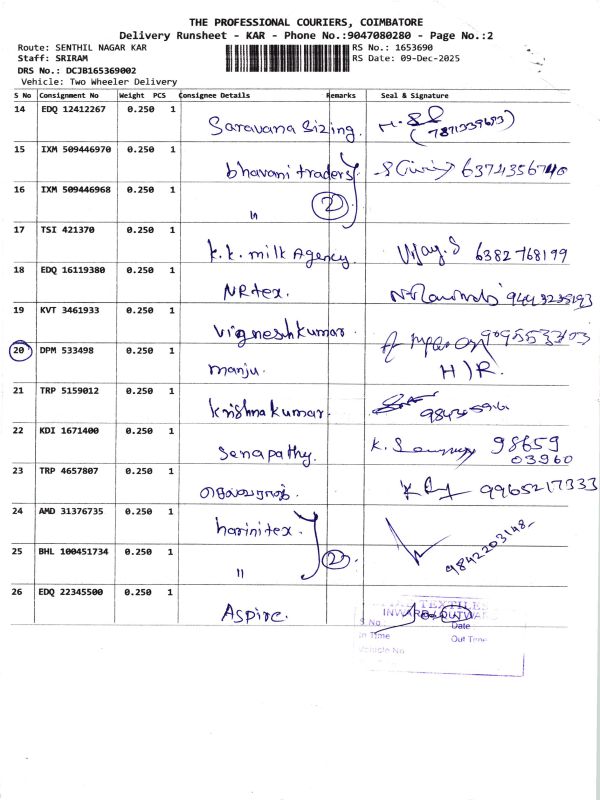 THE PROFESSIONAL COURIERS, COIMBATORE
Delivery Runsheet - KAR - Phone No.:9047080280 - Page No.:2
Route: SENTHIL NAGAR KAR
RS No.: 1653690
Staff: SRIRAM
RS Date: 09-Dec-2025
DRS No.: DCJB165369002
Vehicle: Two Wheeler Delivery
S No Consignment No Weight PCS Consignee Details Remarks Seal & Signature
14 EDQ 12412267 0.250 1 Saravana Sizing. (7871339693)
15 IXM 509446970 0.250 1 bhavani traders 6374356740
16 IXM 509446968 0.250 1 " 2
17 TSI 421370 0.250 1 K.K. milk Agency. Vijay.S 6382768199
18 EDQ 16119380 0.250 1 NRtex.
19 KVT 3461933 0.250 1 Vigneshkumar
20 DPM 533498 0.250 1 manju. H)R.
21 TRP 5159012 0.250 1 Krishnakumar.
22 KDI 1671400 0.250 1 Senapathy. 98659
03960
23 TRP 4657807 0.250 1 9965217333
24 AMD 31376735 0.250 1 harinitex.
25 BHL 100451734 0.250 1 " 2 9842203148
26 EDQ 22345500 0.250 1 Aspire.
TEXTILES
INWARD / OUTWARD
S No. Date
In Time Out Time
Vehicle No